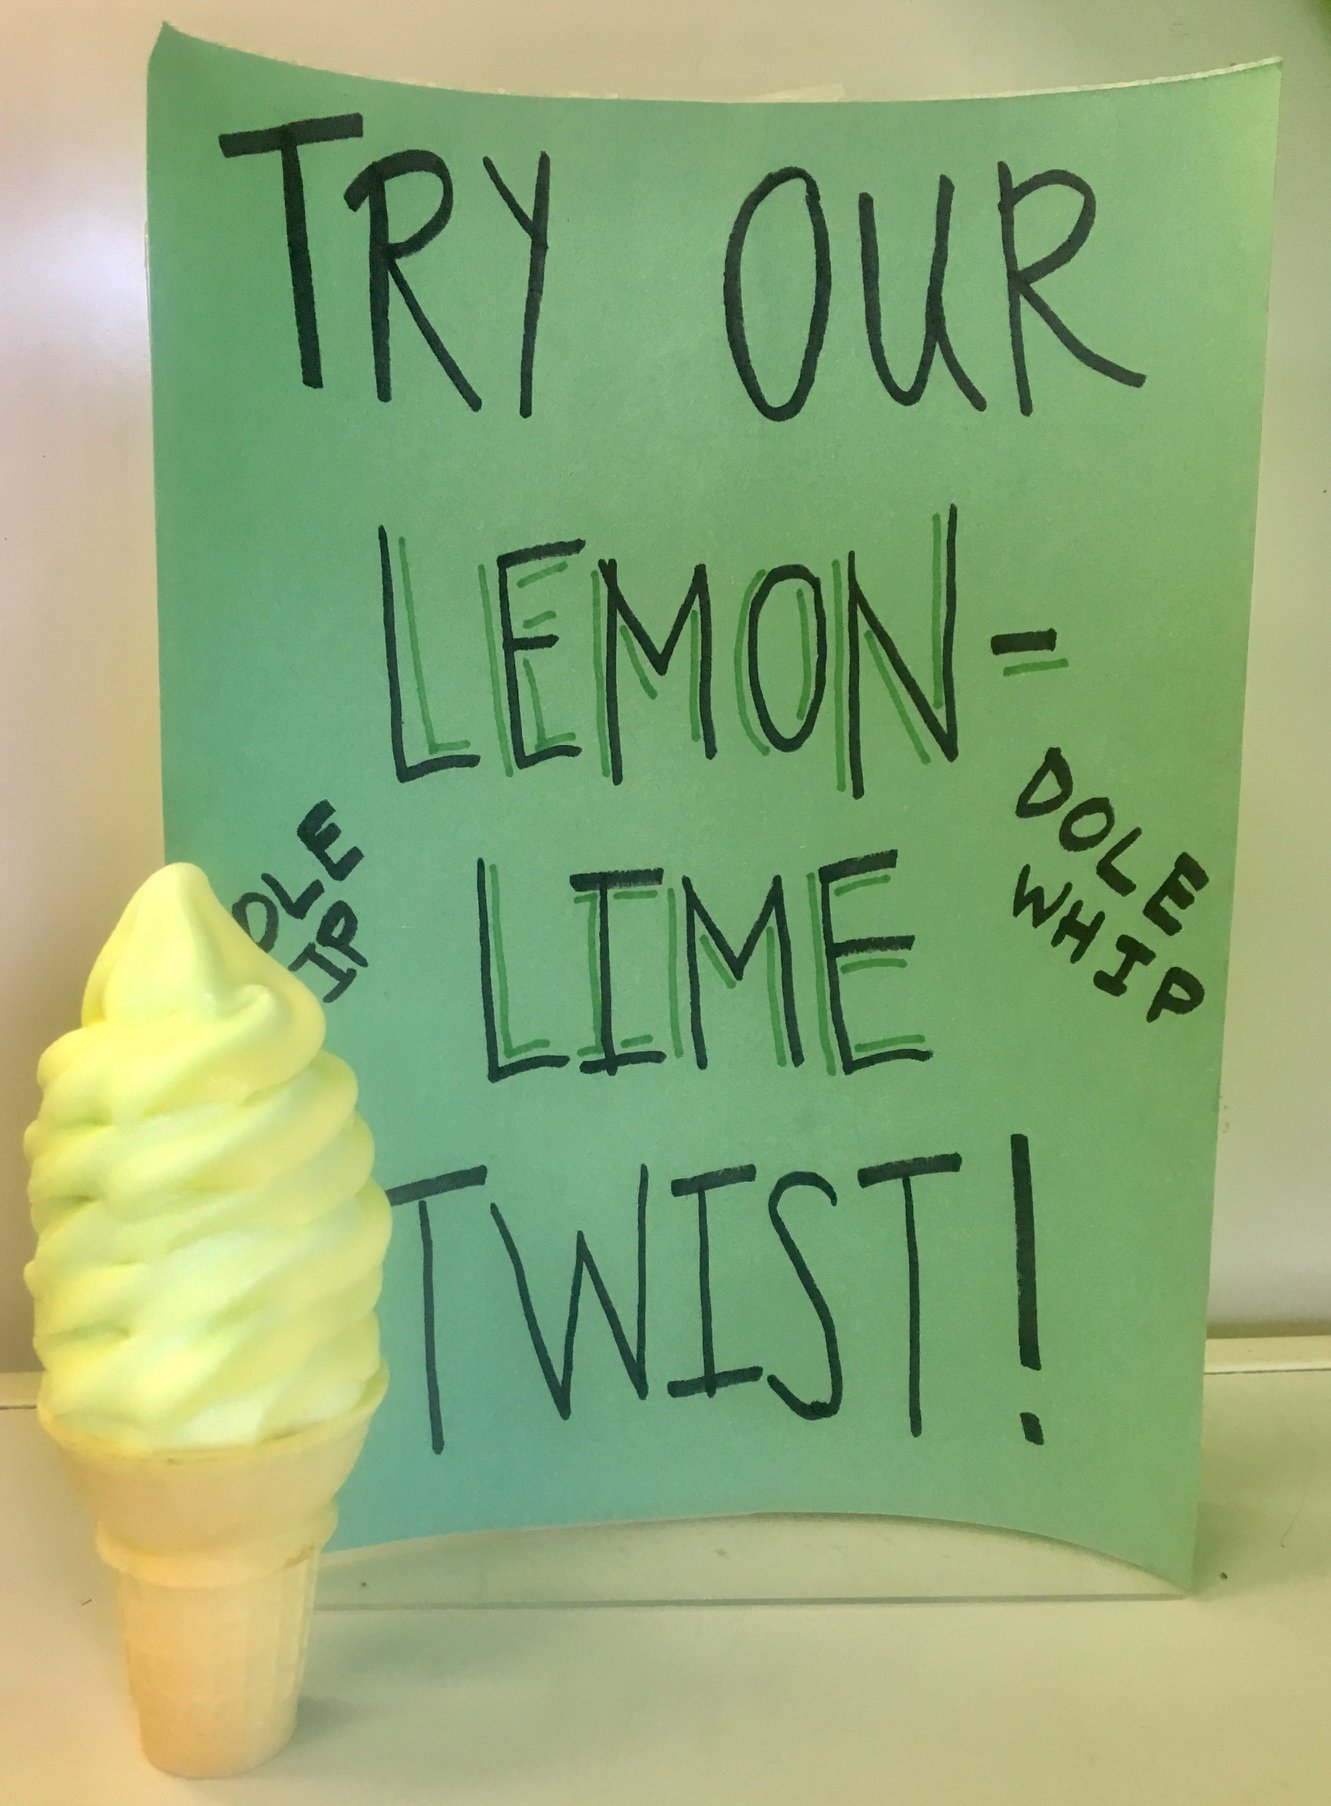 TRY OUR
LEMON-
LIME
TWIST!
DOLE
WHIP